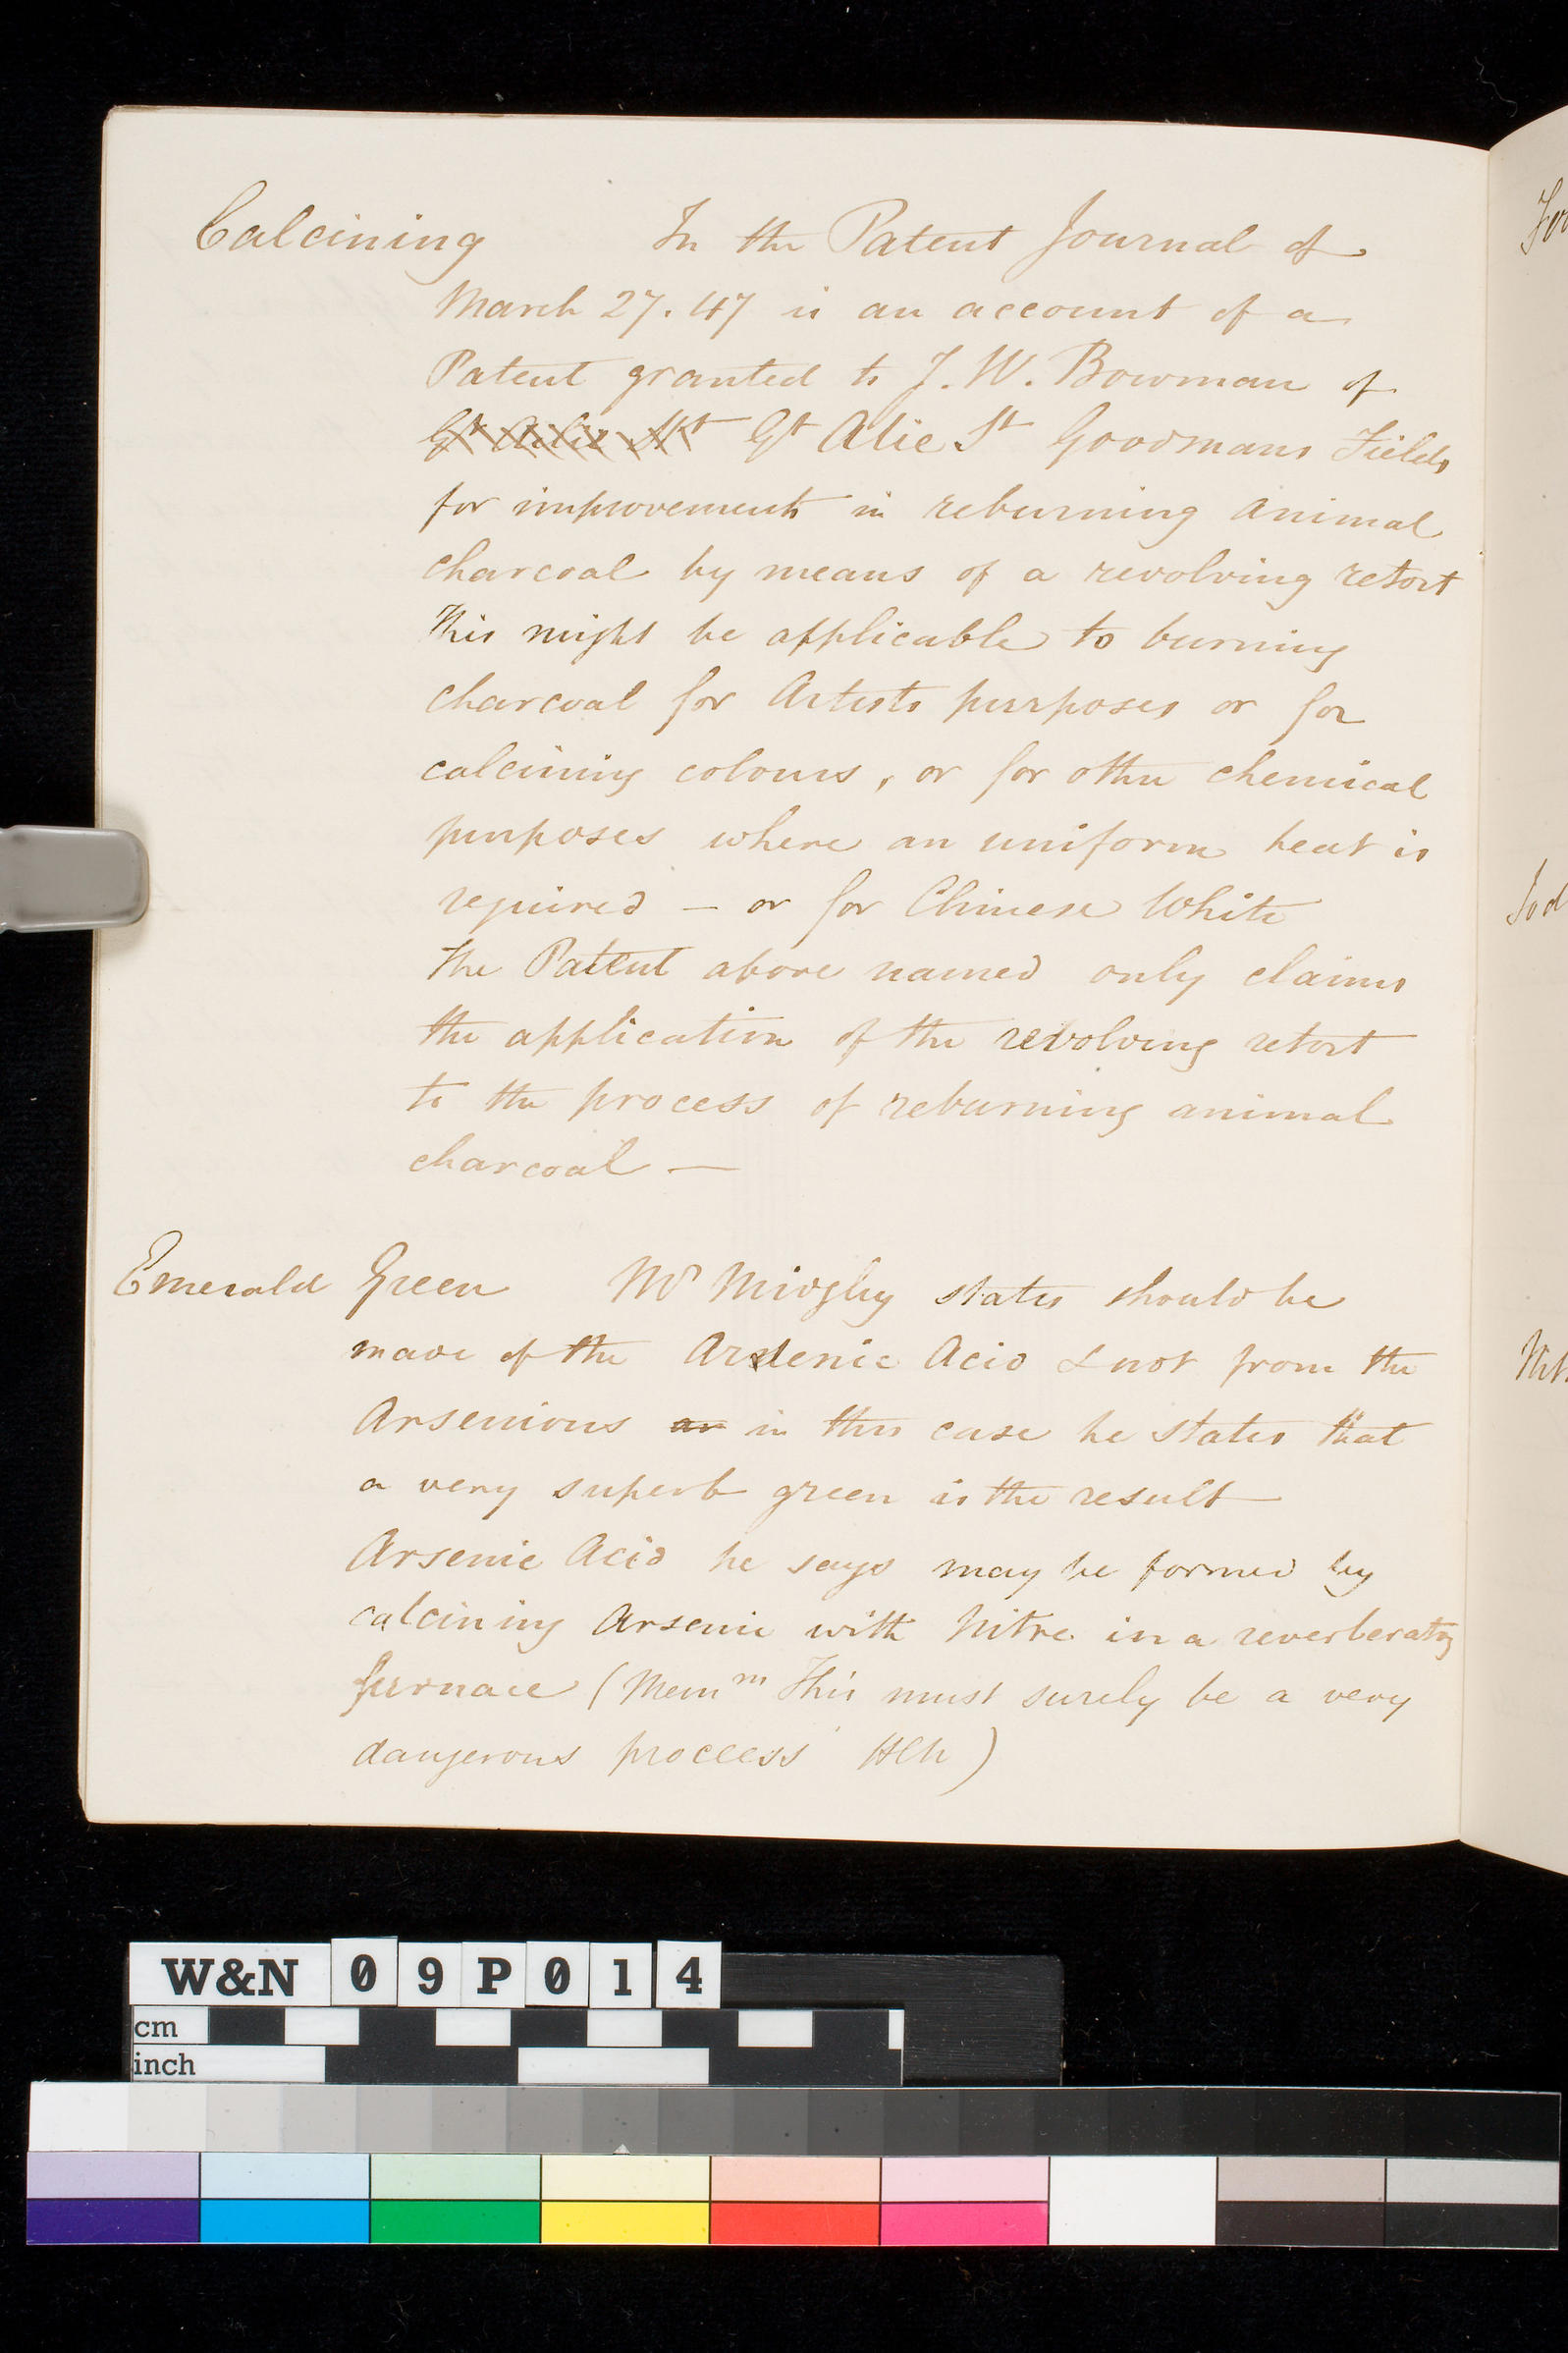 Calcining In the Patent Journal of
March 27. 47 is an account of a
Patent granted to J. W. Bowman of
Gt Alie St Gt Alie St Goodmans Fields
for improvements in reburning animal
charcoal by means of a revolving retort
This might be applicable to burning
charcoal for Artists purposes or for
calcining colours, or for other chemical
purposes where an uniform heat is
required — or for Chinese White
The Patent above named only claims
the application of the revolving retort
to the process of reburning animal
charcoal —
Emerald Green Mr Midgley states should be
made of the Arsenic Acid & not from the
Arsenious an in this case he states that
a very superb green is the result
Arsenic Acid he says may be formed by
calcining Arsenic with Nitre in a reverberatory
furnace (Memm This must surely be a very
dangerous process HCN)
W&N 09P014
cm
inch